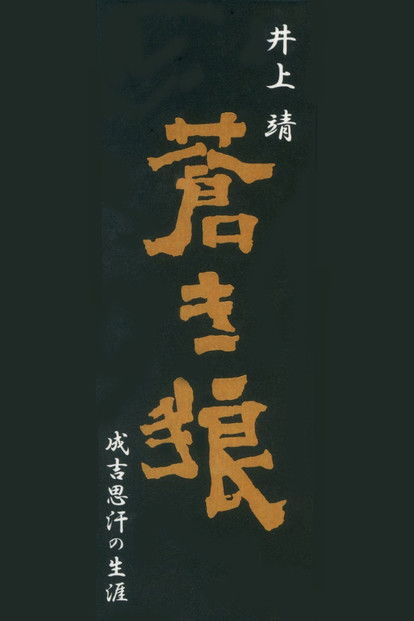 井上靖
蒼き狼
成吉思汗の生涯